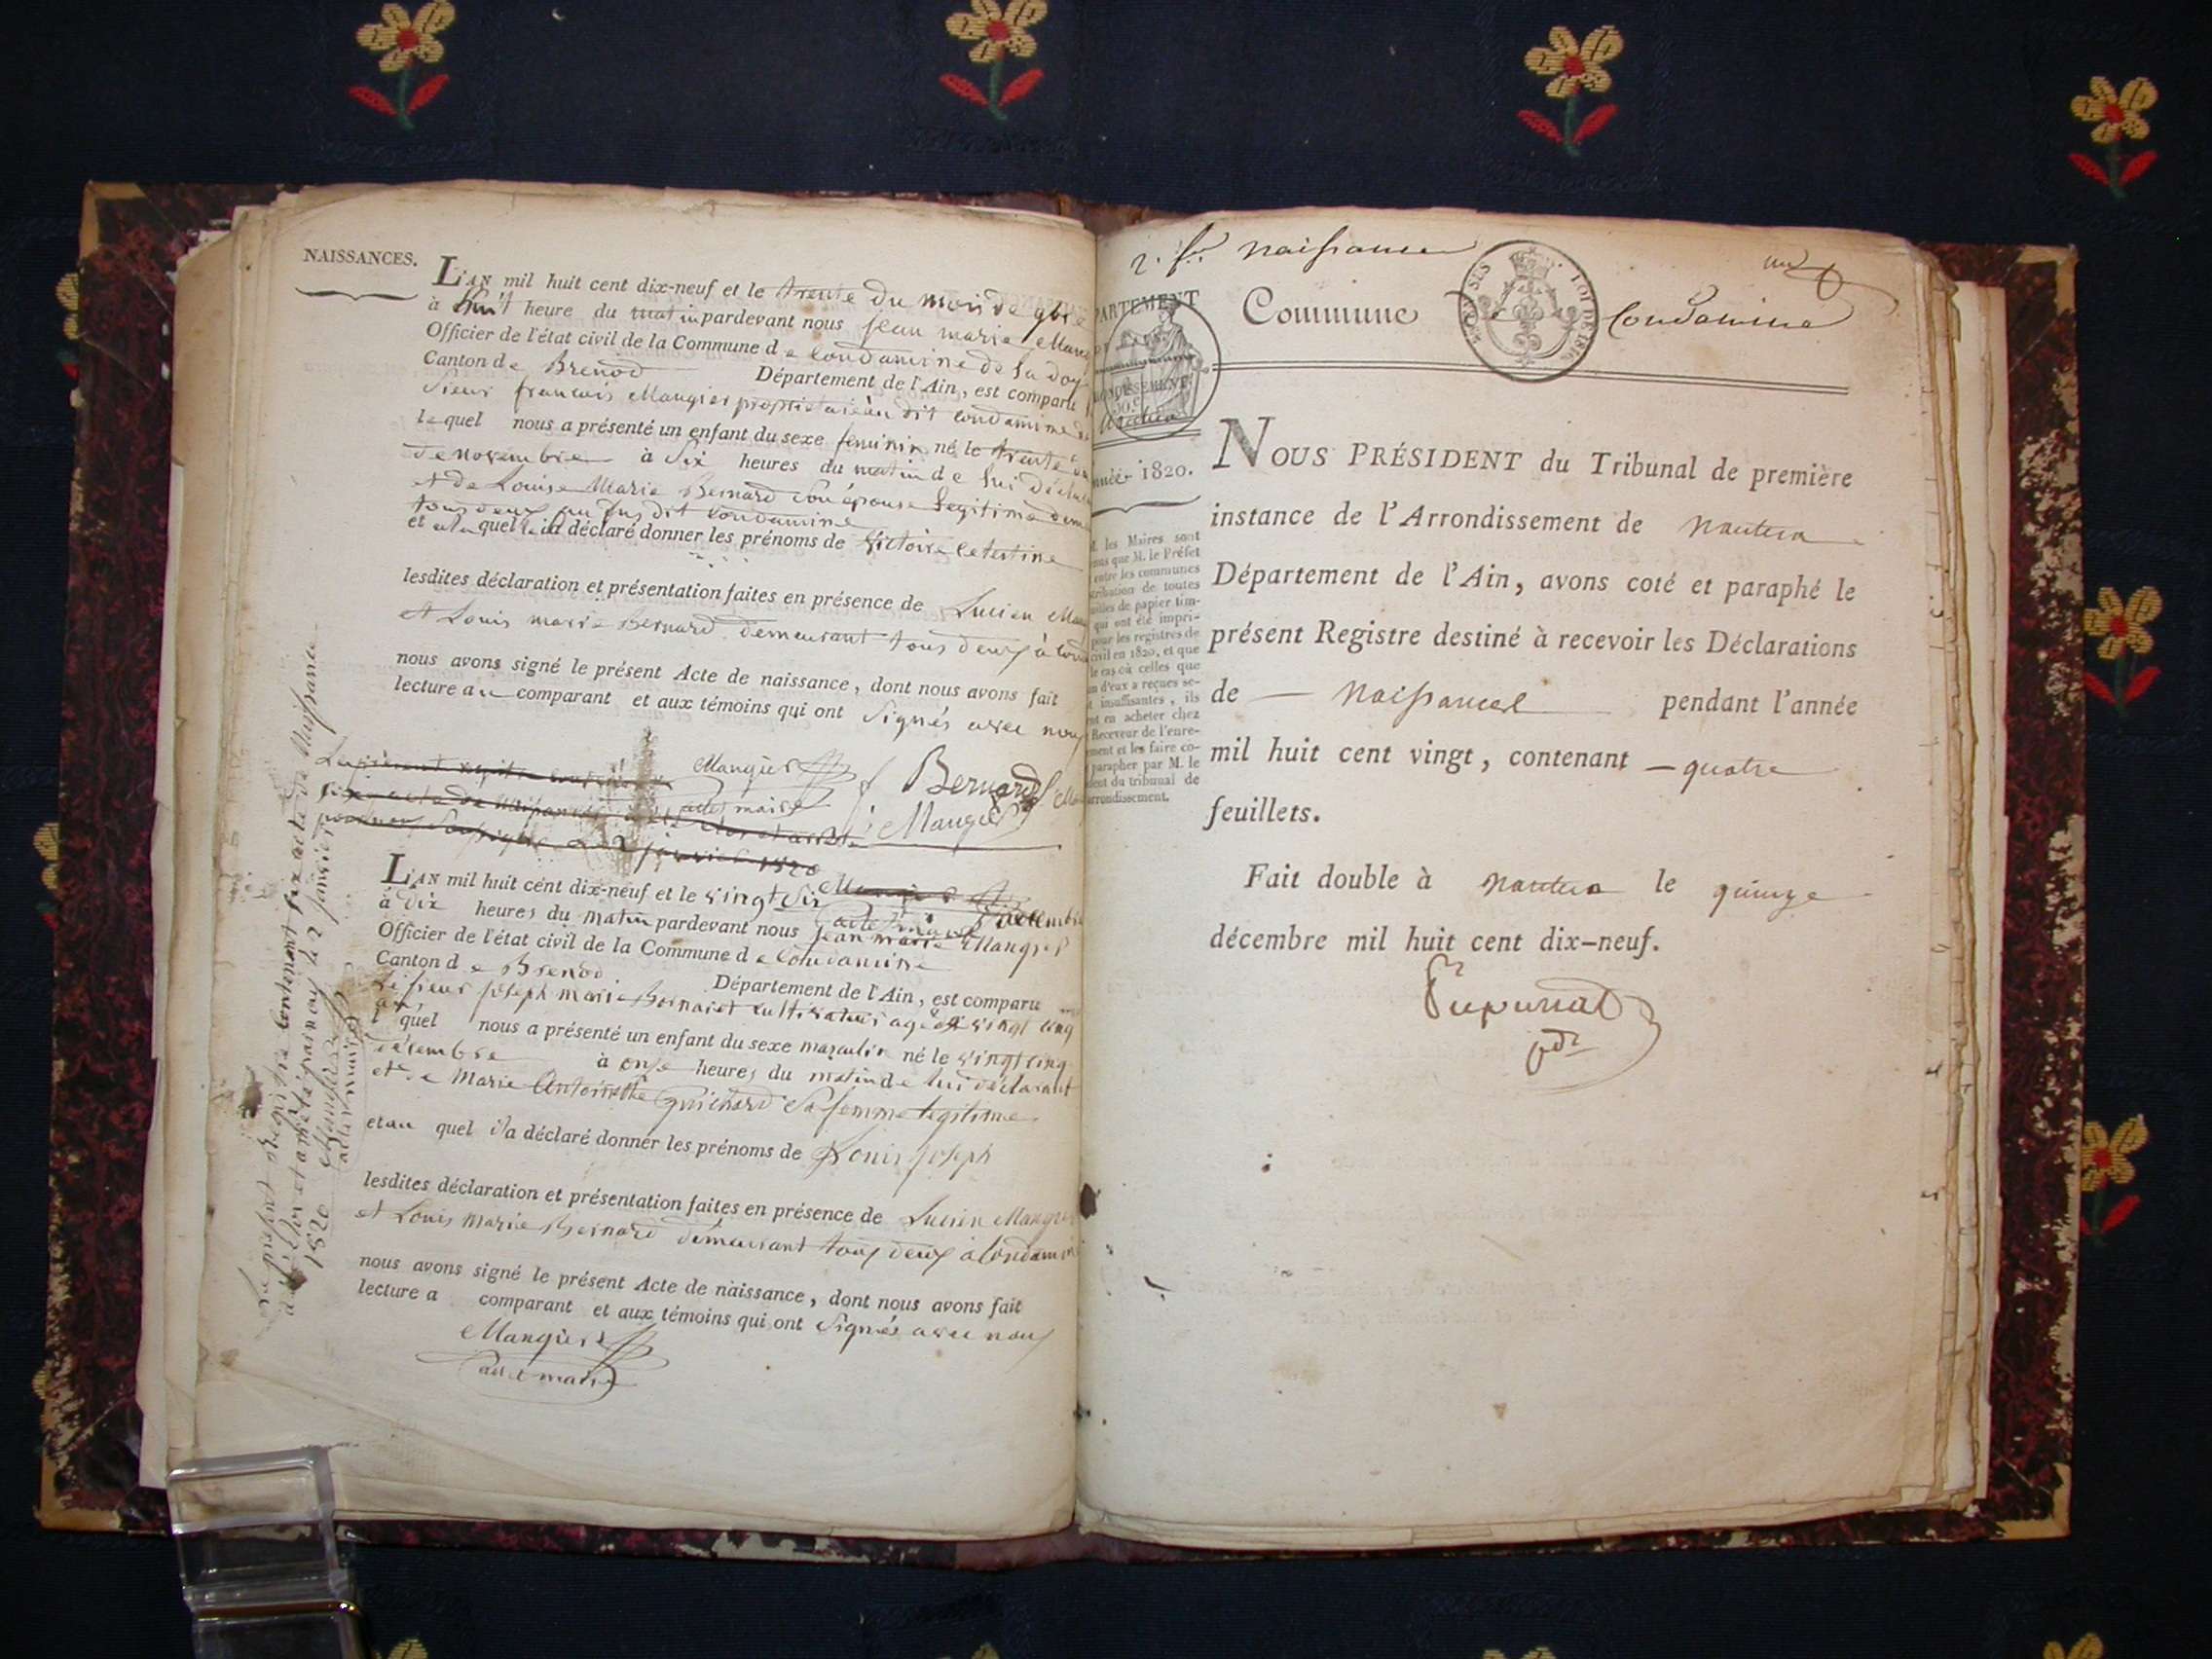 NAISSANCES.
L'AN mil huit cent dix-neuf et le trente du mois de 9bre
à huit heure du matin pardevant nous jean marie
Officier de l'état civil de la Commune de Condamine de la doy
Canton de Brenod Département de l'Ain, est comparu
Sieur francois Mangier proprietaire au dit Condamine
lequel nous a présenté un enfant du sexe feminin né le trente
de novembre à six heures du matin de lui
et de Louise Marie Bernard son épouse legitime
tous deux au susdit Condamine
et quel déclaré donner les prénoms de Victoire Celestine
lesdites déclaration et présentation faites en présence de Lucien
et Louis marie Bernard demeurant tous deux à
nous avons signé le présent Acte de naissance, dont nous avons fait
lecture au comparant et aux témoins qui ont signés avec nous
Mangier Bernard
maire Mangier
2 janvier 1820
L'AN mil huit cent dix-neuf et le vingt six decembre
à dix heures du matin pardevant nous jean marie Mangier
Officier de l'état civil de la Commune de Condamine
Canton de Brenod Département de l'Ain, est comparu
le sieur joseph marie cultivateur agé de vingt cinq
quel nous a présenté un enfant du sexe masculin né le vingt cinq
decembre à onze heures du matin de lui déclarant
et de Marie Antoinette guichard sa femme legitime
et au quel il a déclaré donner les prénoms de Louis joseph
lesdites déclaration et présentation faites en présence de Lucien Mangier
et Louis Marie Bernard demeurant tous deux à Condamine
nous avons signé le présent Acte de naissance, dont nous avons fait
lecture a comparant et aux témoins qui ont signés avec nous
Mangier
maire
Le présent registre contenant six actes de Naissance
a été clos et arreté par nous le 2 janvier
1820 Mangier
maire
naissance
Commune Condamine
LOI DE 1816
PARTEMENT
1820.
M. les Maires sont
que M. le Préfet
entre les communes
de toutes
de papier tim-
qui ont été impri-
pour les registres de
civil en 1820, et que
le cas où celles que
d'eux a reçues se-
insuffisantes, ils
en acheter chez
Receveur de l'enre-
et les faire co-
parapher par M. le
du tribunal de
NOUS PRÉSIDENT du Tribunal de première
instance de l'Arrondissement de Nantua
Département de l'Ain, avons coté et paraphé le
présent Registre destiné à recevoir les Déclarations
de — Naissances pendant l'année
mil huit cent vingt, contenant — quatre
feuillets.
Fait double à Nantua le quinze
décembre mil huit cent dix-neuf.